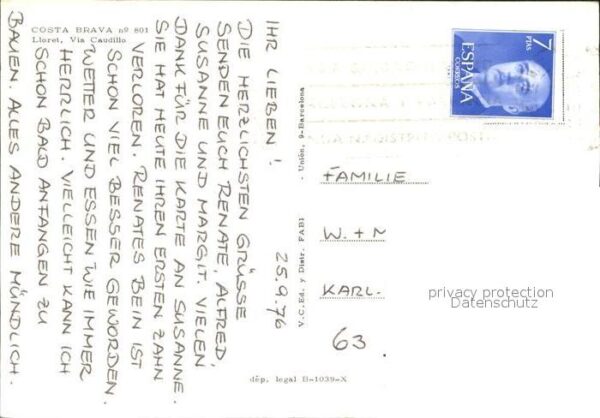 COSTA BRAVA nº 801
Lloret, Via Caudillo
IHR LIEBEN!
25.9.76
DIE HERZLICHSTEN GRÜSSE
SENDEN EUCH RENATE, ALFRED,
SUSANNE UND MARGIT. VIELEN
DANK FÜR DIE KARTE AN SUSANNE.
SIE HAT HEUTE IHREN ERSTEN ZAHN
VERLOREN. RENATES BEIN IST
SCHON VIEL BESSER GEWORDEN.
WETTER UND ESSEN WIE IMMER
HERRLICH. VIELLEICHT KANN ICH
SCHON BALD ANFANGEN ZU
BAUEN. ALLES ANDERE MÜNDLICH.
V.C.Ed. y Distr. FABI - Unión, 9-Barcelona
dép. legal B-1039-X
7
PTAS
ESPAÑA
CORREOS
FAMILIE
W. + M
KARL.
63
privacy protection
Datenschutz